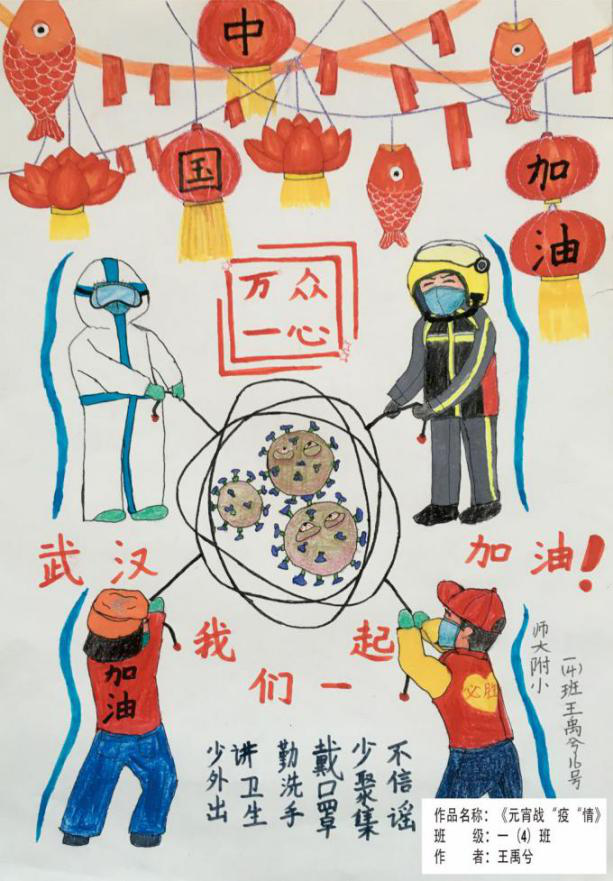 中
国
加
油
万众
一心
武汉 加油！
我 起
们一
加
油
必胜
不信谣
少聚集
戴口罩
勤洗手
讲卫生
少外出
师大附小
一(4)班王禹兮16号
作品名称：《元宵战“疫“情》
班 级：一（4）班
作 者：王禹兮